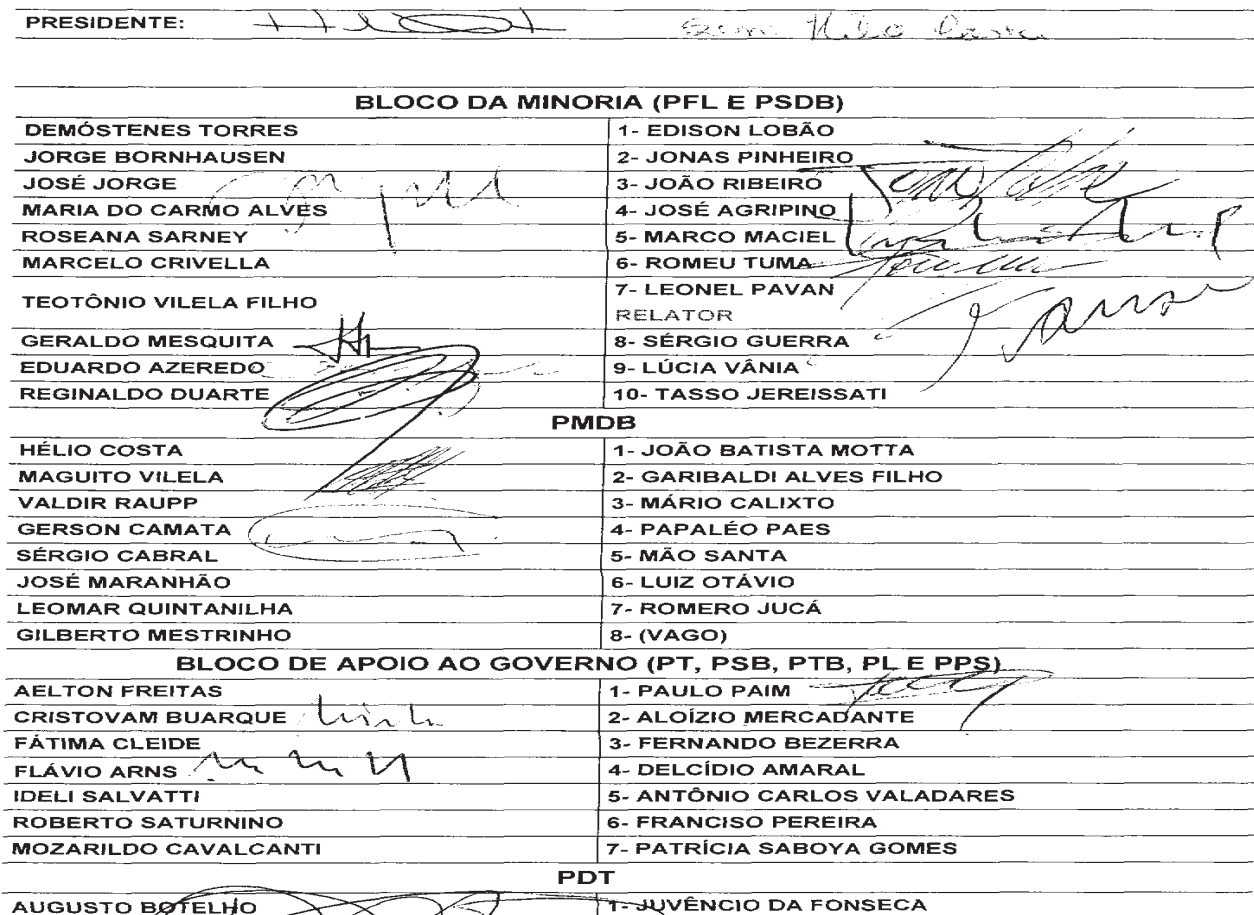 PRESIDENTE:
BLOCO DA MINORIA (PFL E PSDB)
DEMÓSTENES TORRES 1- EDISON LOBÃO
JORGE BORNHAUSEN 2- JONAS PINHEIRO
JOSÉ JORGE 3- JOÃO RIBEIRO
MARIA DO CARMO ALVES 4- JOSÉ AGRIPINO
ROSEANA SARNEY 5- MARCO MACIEL
MARCELO CRIVELLA 6- ROMEU TUMA
TEOTÔNIO VILELA FILHO 7- LEONEL PAVAN
RELATOR
GERALDO MESQUITA 8- SÉRGIO GUERRA
EDUARDO AZEREDO 9- LÚCIA VÂNIA
REGINALDO DUARTE 10- TASSO JEREISSATI
PMDB
HÉLIO COSTA 1- JOÃO BATISTA MOTTA
MAGUITO VILELA 2- GARIBALDI ALVES FILHO
VALDIR RAUPP 3- MÁRIO CALIXTO
GERSON CAMATA 4- PAPALÉO PAES
SÉRGIO CABRAL 5- MÃO SANTA
JOSÉ MARANHÃO 6- LUIZ OTÁVIO
LEOMAR QUINTANILHA 7- ROMERO JUCÁ
GILBERTO MESTRINHO 8- (VAGO)
BLOCO DE APOIO AO GOVERNO (PT, PSB, PTB, PL E PPS)
AELTON FREITAS 1- PAULO PAIM
CRISTOVAM BUARQUE 2- ALOÍZIO MERCADANTE
FÁTIMA CLEIDE 3- FERNANDO BEZERRA
FLÁVIO ARNS 4- DELCÍDIO AMARAL
IDELI SALVATTI 5- ANTÔNIO CARLOS VALADARES
ROBERTO SATURNINO 6- FRANCISO PEREIRA
MOZARILDO CAVALCANTI 7- PATRÍCIA SABOYA GOMES
PDT
AUGUSTO BOTELHO 1- JUVÊNCIO DA FONSECA